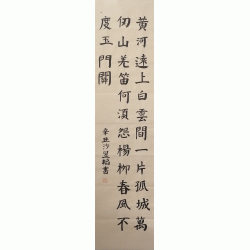 黃河遠上白雲間一片孤城萬
仞山羌笛何須怨楊柳春風不
度玉門關
辛丑 書